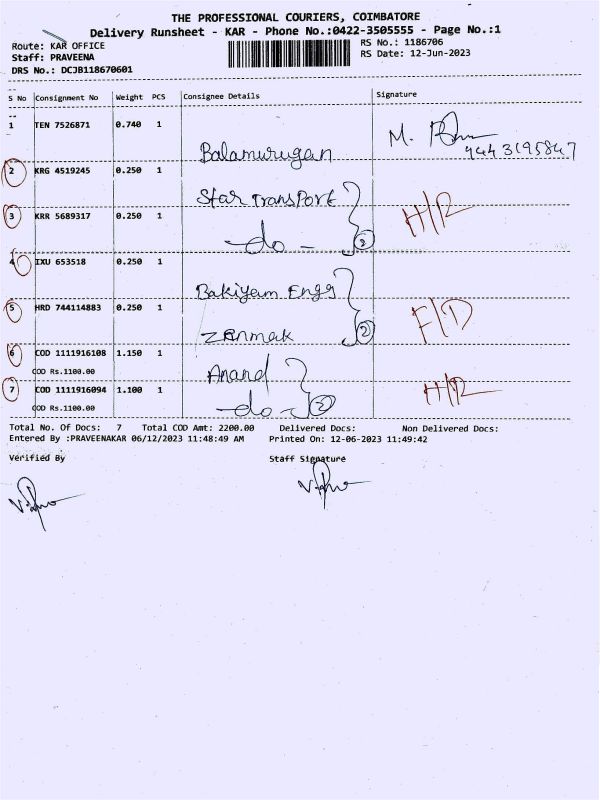 THE PROFESSIONAL COURIERS, COIMBATORE
Delivery Runsheet - KAR - Phone No.:0422-3505555 - Page No.:1
Route: KAR OFFICE
RS No.: 1186706
Staff: PRAVEENA
RS Date: 12-Jun-2023
DRS No.: DCJB118670601
S No Consignment No Weight PCS Consignee Details Signature
1 TEN 7526871 0.740 1
M.
Balamurugan 9443195847
2 KRG 4519245 0.250 1
Star Transport H/R
3 KRR 5689317 0.250 1
- do - 2
4 IXU 653518 0.250 1
Bakiyam Engg
5 HRD 744114883 0.250 1 F/D
Zenmak 2
6 COD 1111916108 1.150 1
COD Rs.1100.00 Anand
7 COD 1111916094 1.100 1 H/R
COD Rs.1100.00 - do - 2
Total No. Of Docs: 7 Total COD Amt: 2200.00 Delivered Docs: Non Delivered Docs:
Entered By :PRAVEENAKAR 06/12/2023 11:48:49 AM Printed On: 12-06-2023 11:49:42
Verified By Staff Signature